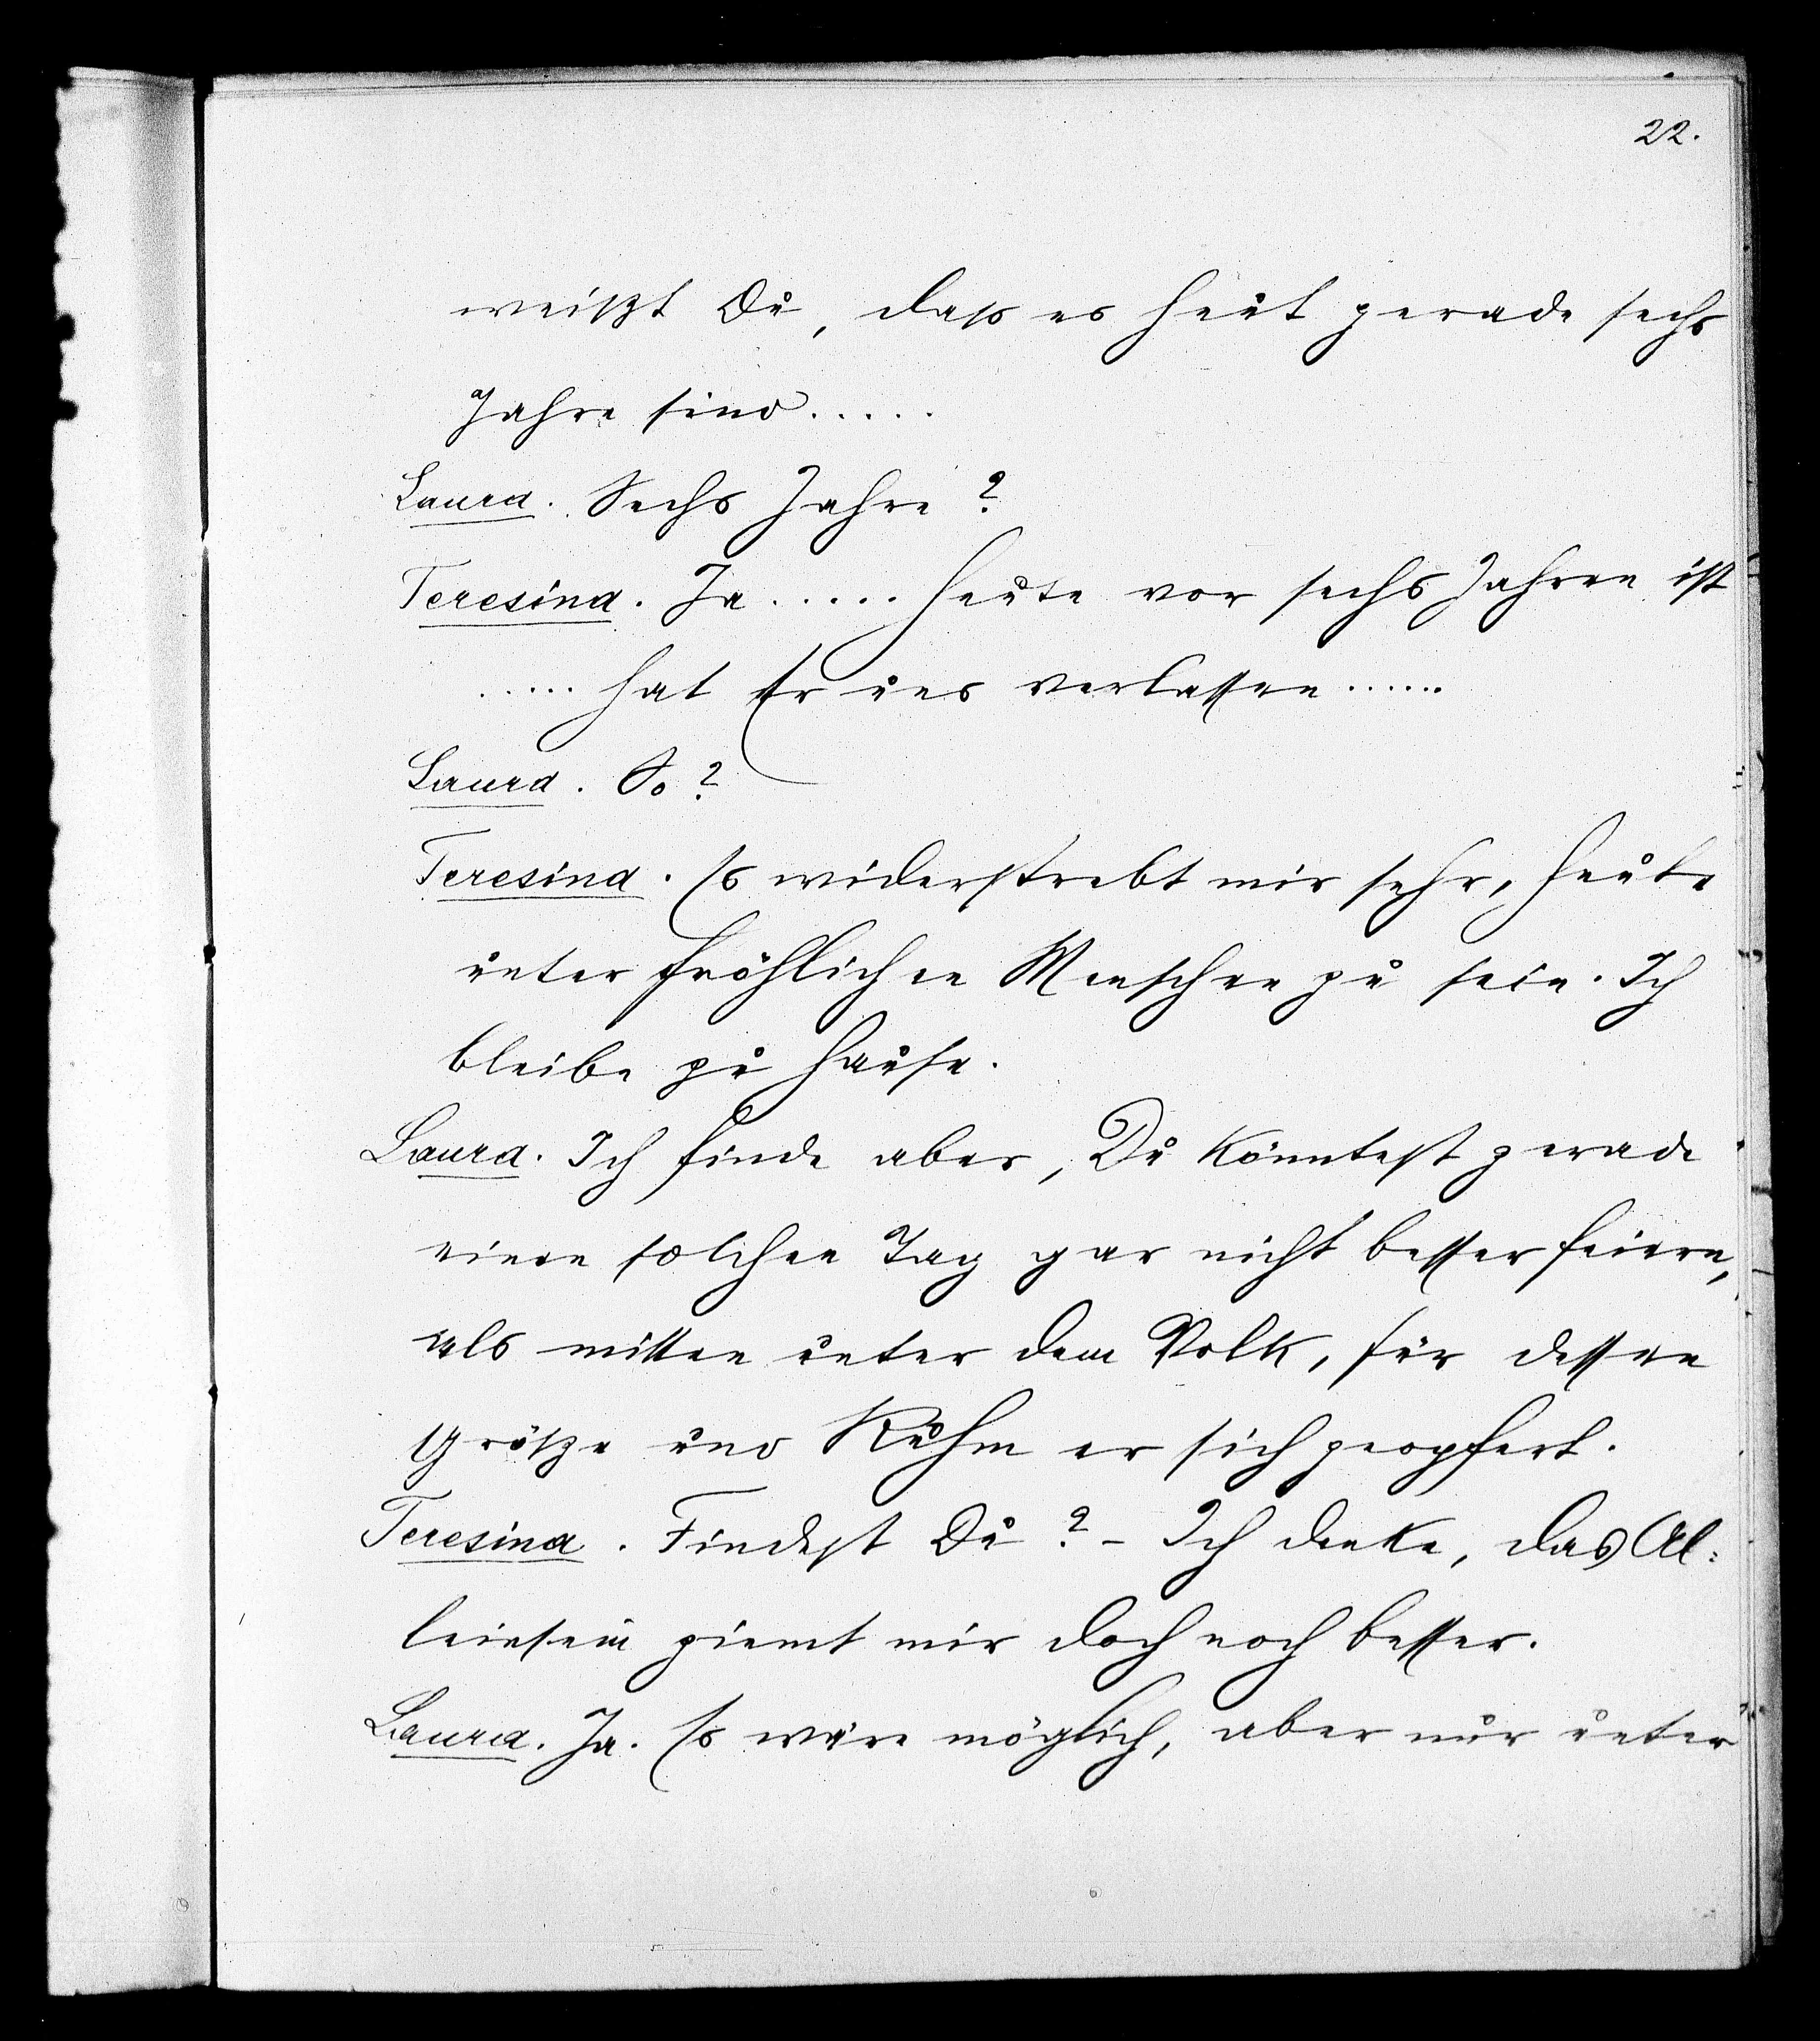 22.
weißt Du, dass es heut gerade sechs
Jahre sind.....
Laura. Sechs Jahre?
Teresina. Ja..... heute vor sechs Jahren ist
..... hat Er uns verlassen......
Laura. So?
Teresina. Es widerstrebt mir sehr, heute
unter fröhlichen Menschen zu sein. Ich
bleibe zu Hause.
Laura. Ich finde aber, Du könntest gerade
einen solchen Tag gar nicht besser feiern,
als mitten unter dem Volk, für dessen
Größe und Ruhm er sich geopfert.
Teresina. Findest Du? - Ich denke, das Al=
leinsein ziemt mir doch noch besser.
Laura. Ja. Es wäre möglich, aber nur unter